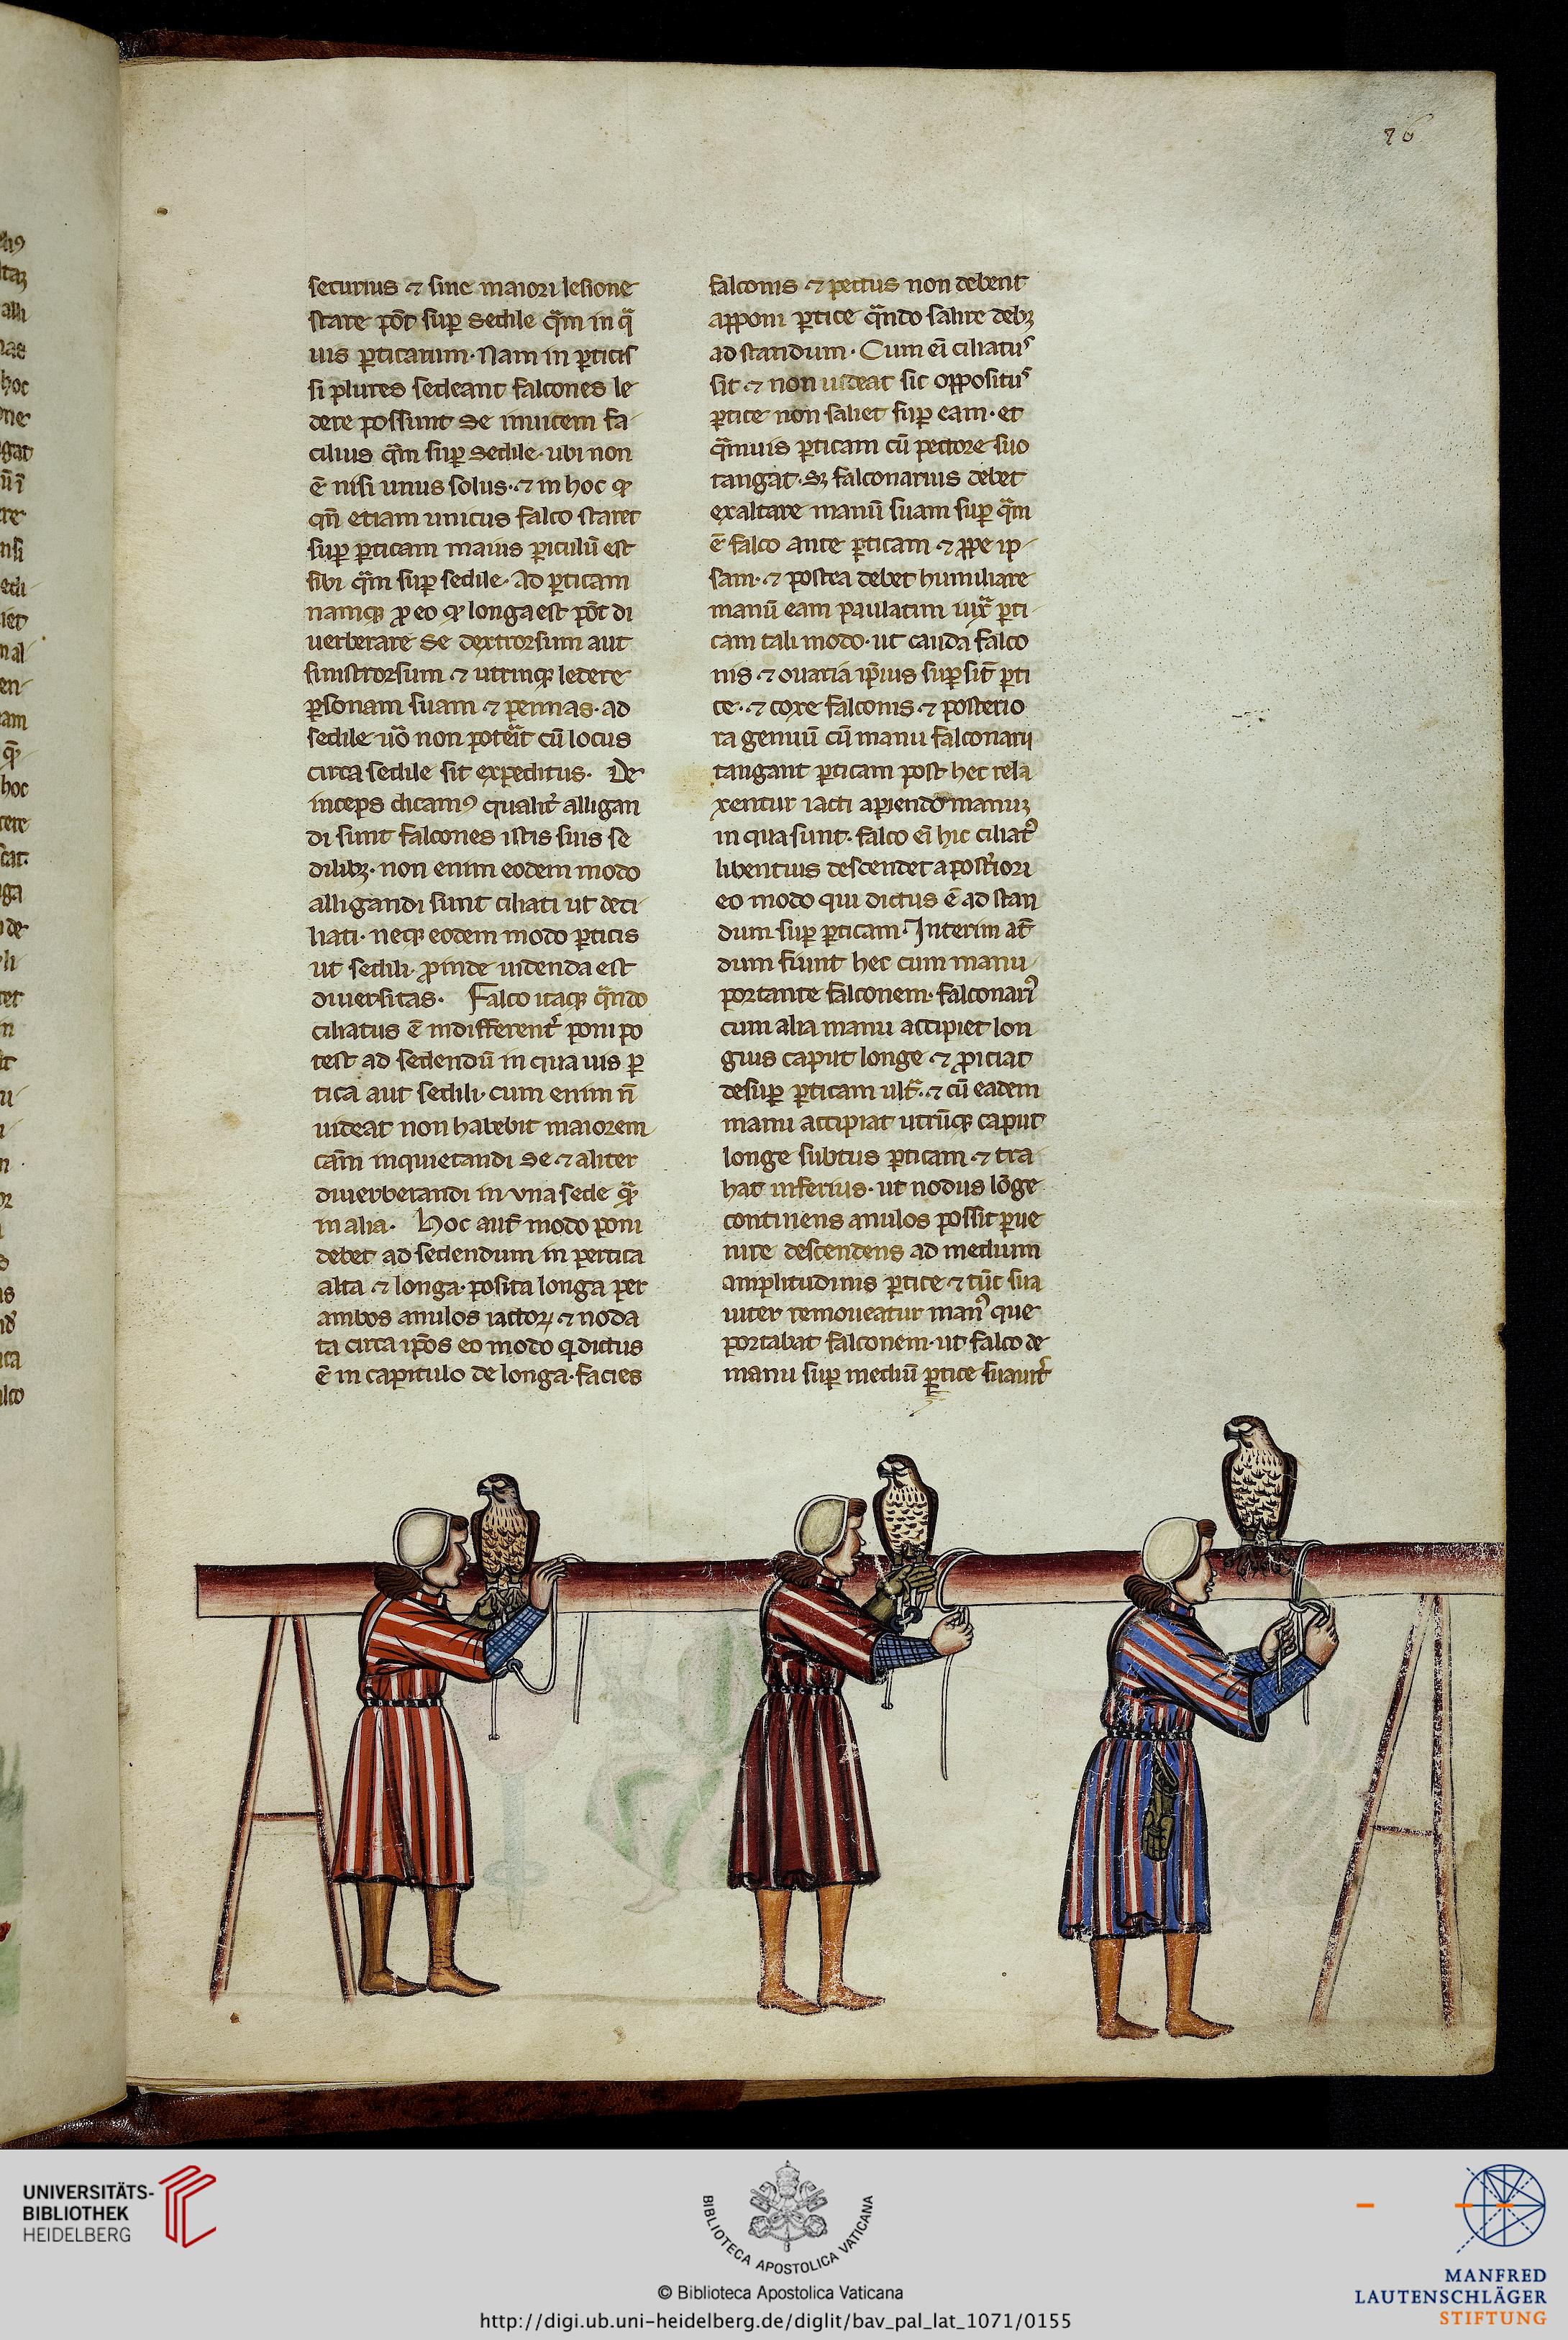 76
securius ⁊ sine maiori lesione
stare pot̄ suꝑ sedile qͣm in q̄
uis ꝑticarum. Nam in ꝑticis
si plures sedeant falcones le
dere possunt se inuicem fa
cilius qͣm suꝑ sedile. ubi non
ē nisi unus solus. ⁊ in hoc ꝙ
qn̄ etiam unicus falco staret
suꝑ ꝑticam maius ꝑiculū est
sibi qͣm suꝑ sedile. Ad ꝑticam
namqꝫ ꝓ eo ꝙ longa est pot̄ di
uerberare se dextrorsum aut
sinistrorsum ⁊ utrinqꝫ ledere
ꝑsonam suam ⁊ pennas. ad
sedile uo̊ non poteīt cū locus
circa sedile sit expeditus. De
inceps dicamꝰ qualit̄ alligan
di sunt falcones istis suis se
dilibꝫ. non enim eodem modo
alligandi sunt ciliati ut deci
liati. neqꝫ eodem modo ꝑticis
ut sedili. ꝓinde uidenda est
diuersitas. Falco itaqꝫ qͣndo
ciliatus ē indifferent̄ poni po
test ad sedendū in qua uis ꝑ
tica aut sedili. cum enim n̄
uideat non habebit maiorem
cām inquietandi se ⁊ aliter
diuerberandi in una sede qͣ̄
in alia. Hoc aut̄ modo poni
debet ad sedendum in pertica
alta ⁊ longa. posita longa per
ambos anulos iactoꝝ ⁊ noda
ta circa ip̄os eo modo q dictus
ē in capitulo de longa. facies
falconis ⁊ pectus non debent
apponi ꝑtice qͣndo salire debꝫ
ad standum. Cum ei̅ ciliatus
sit ⁊ non uideat sic oppositus
ꝑtice non saliet suꝑ eam. et
qͣmuis ꝑticam cū pectore suo
tangat. sꝫ falconarius debet
exaltare manū suam suꝑ qͣm
ē falco ante ꝑticam ⁊ ꝓpe ip
sam. ⁊ postea debet humiliare
manū eam paulatim iuxͣ ꝑti
cam tali modo. ut cauda falco
nis ⁊ ouaria ip̄ius suꝑ sit ꝑti
ce. ⁊ coxe falconis ⁊ posterio
ra genuū cū manu falconarij
tangant ꝑticam post hec rela
xentur iacti aꝑiendo manuꝫ
in qua sunt. falco ei̅ hic ciliatꝰ
libentius descendet a post̄iori
eo modo qui dictus ē ad stan
dum suꝑ ꝑticam. Interim at̄
dum fiunt hec cum manu
portante falconem. falconariꝰ
cum alia manu accipiet lon
gius caput longe ⁊ ꝓiciat
desuꝑ ꝑticam ultͣ. ⁊ cū eadem
manu accipiat utrūqꝫ caput
longe subtus ꝑticam ⁊ tra
hat inferius. ut nodus lōge
continens anulos possit ꝑue
nire descendens ad medium
amplitudinis ꝑtice ⁊ tūc sua
uiter remoueatur manꝰ que
portabat falconem. ut falco de
manu suꝑ mediū ꝑtice suauit̄
UNIVERSITÄTS-
BIBLIOTHEK
HEIDELBERG
BIBLIOTECA APOSTOLICA VATICANA
© Biblioteca Apostolica Vaticana
http://digi.ub.uni-heidelberg.de/diglit/bav_pal_lat_1071/0155
MANFRED
LAUTENSCHLÄGER
STIFTUNG